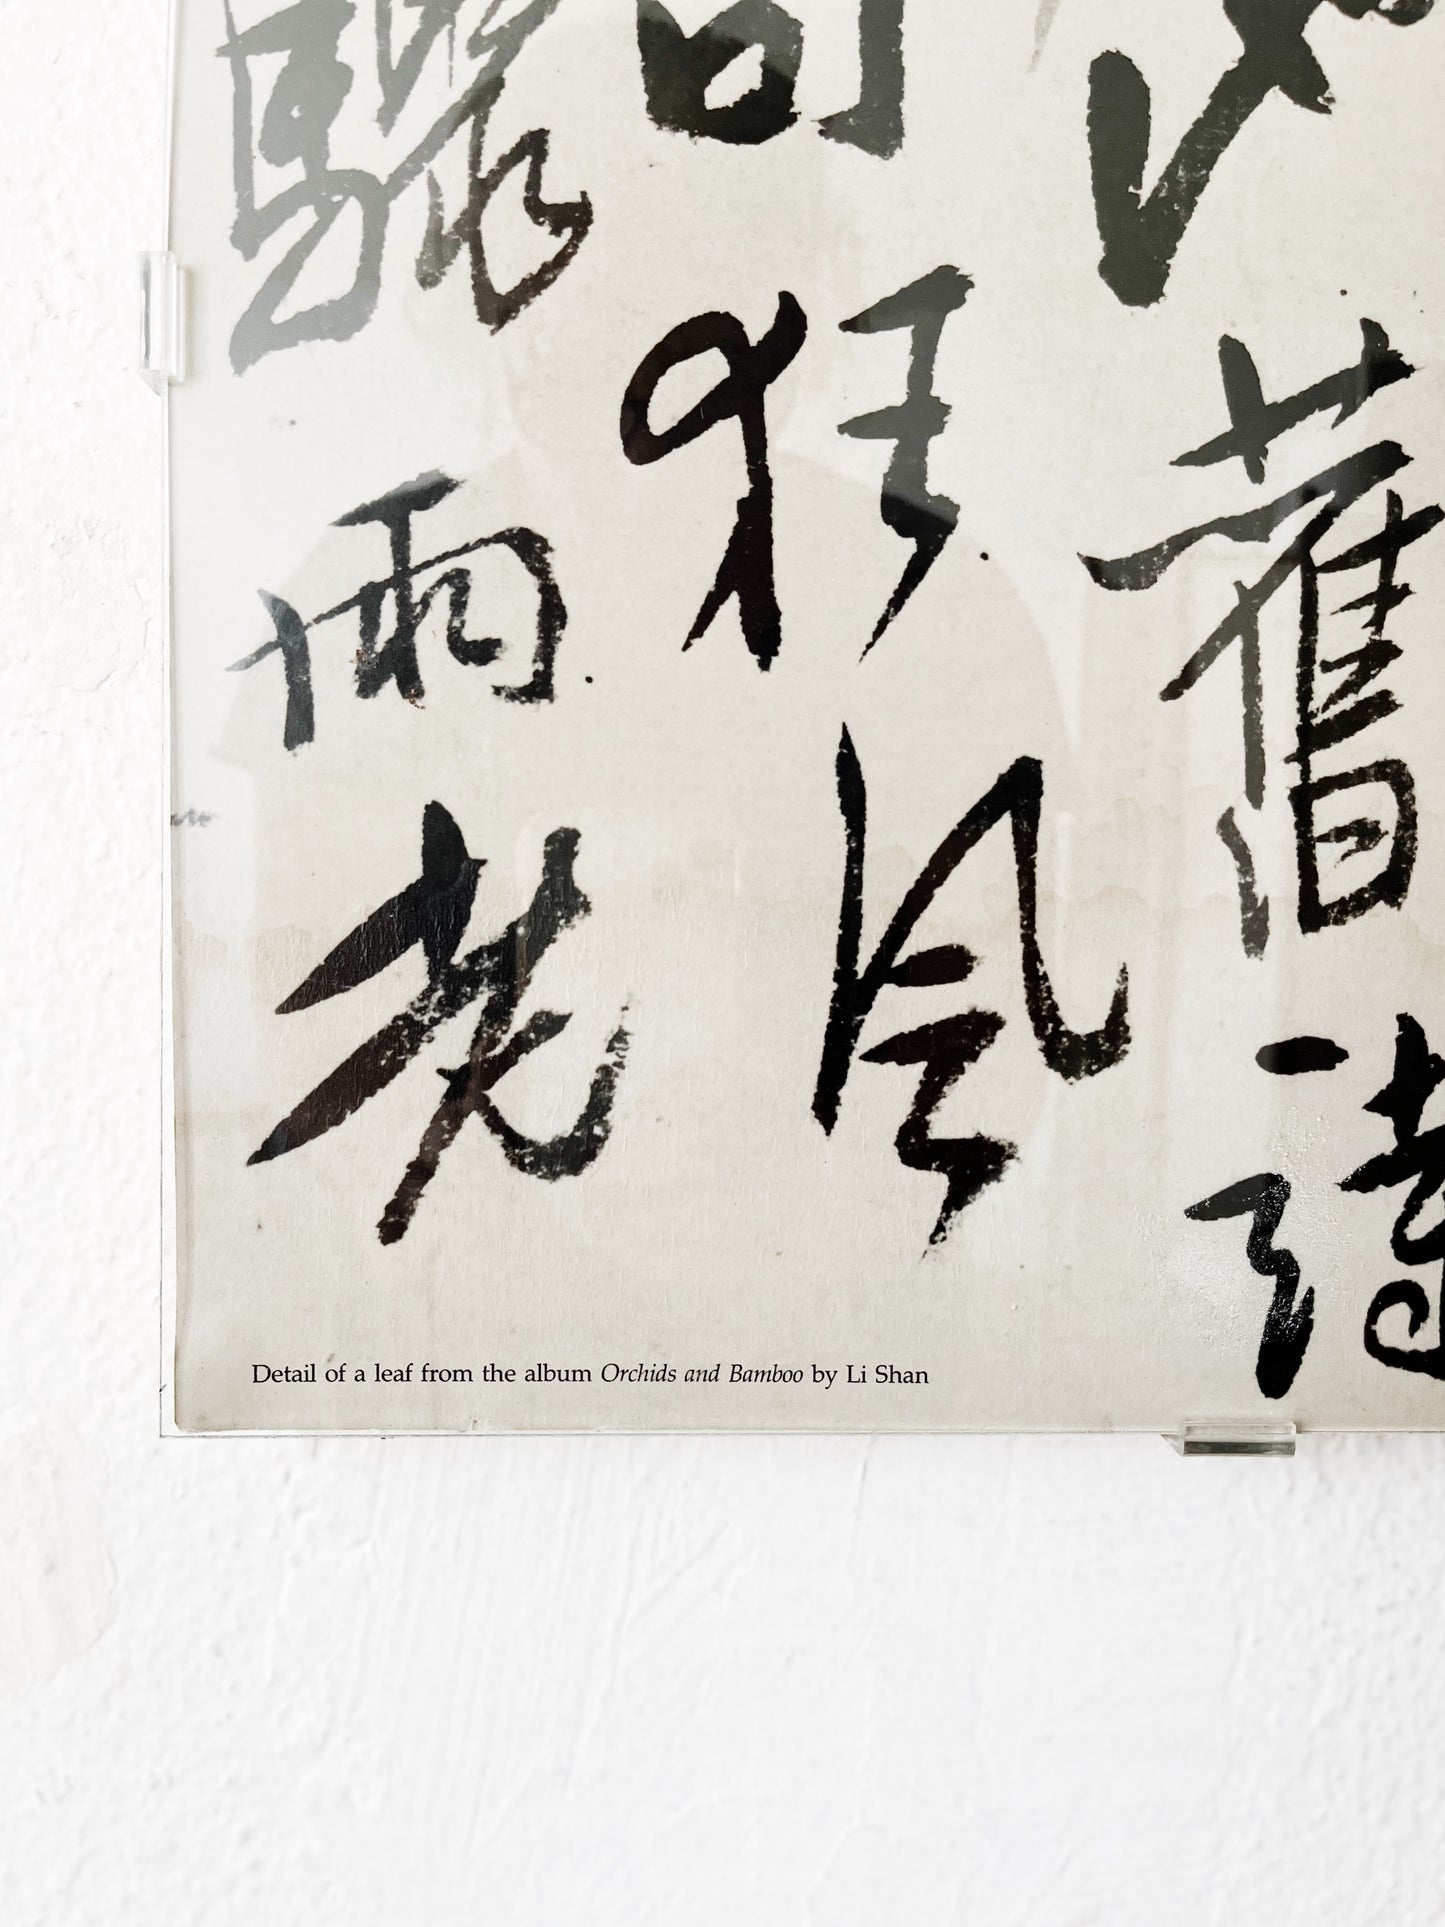 舊詩
狂風
驟雨老
Detail of a leaf from the album Orchids and Bamboo by Li Shan